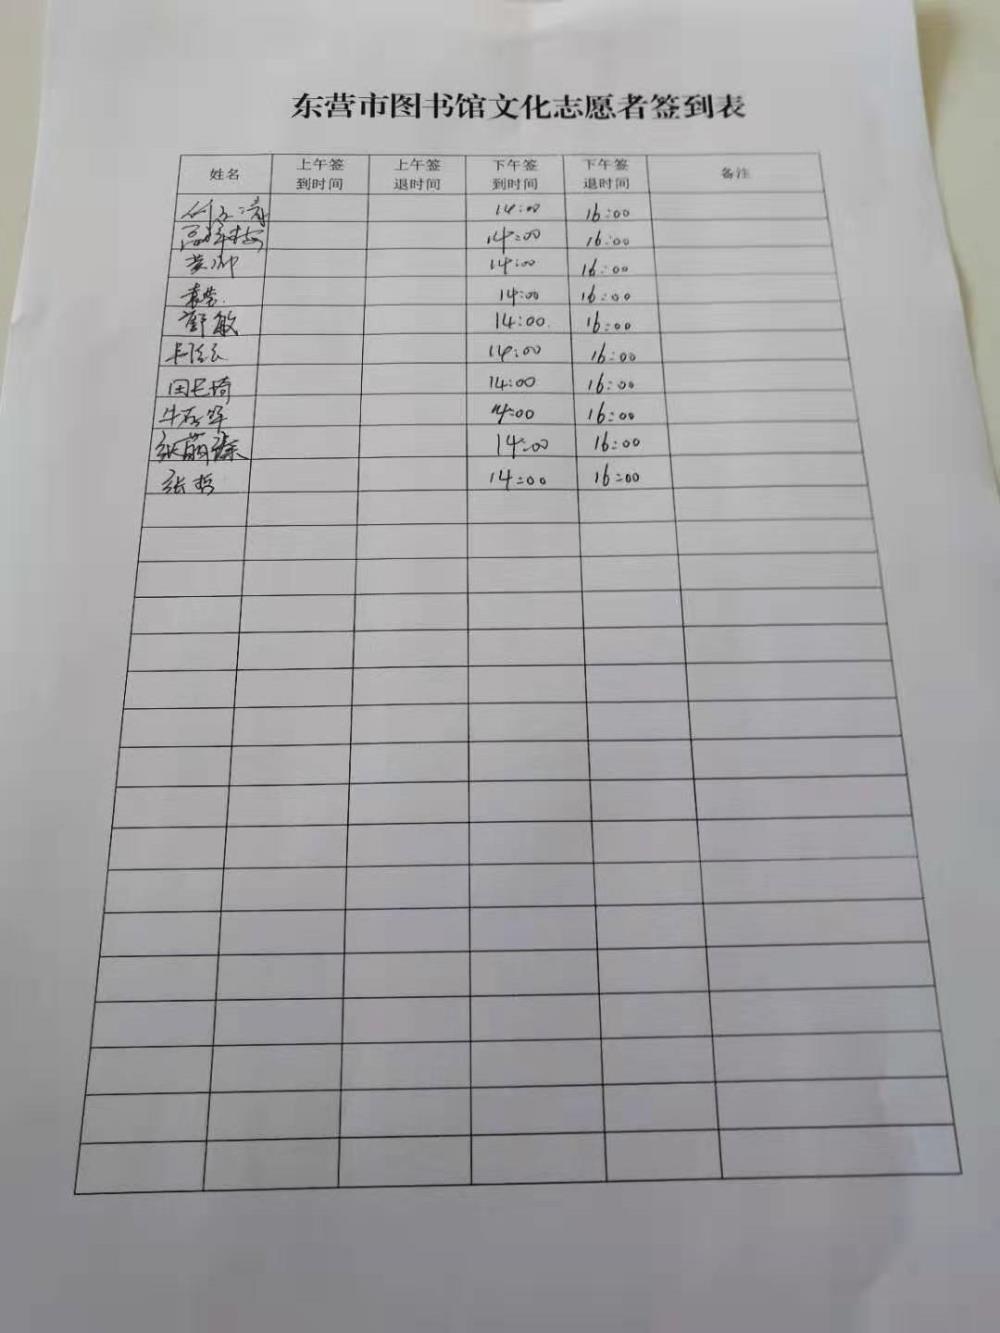 东营市图书馆文化志愿者签到表
姓名 上午签到时间 上午签退时间 下午签到时间 下午签退时间 备注
14:00 16:00
14:00 16:00
14:00 16:00
14:00 16:00
敏 14:00 16:00
14:00 16:00
田 14:00 16:00
牛 14:00 16:00
张萌 14:00 16:00
张哲 14:00 16:00